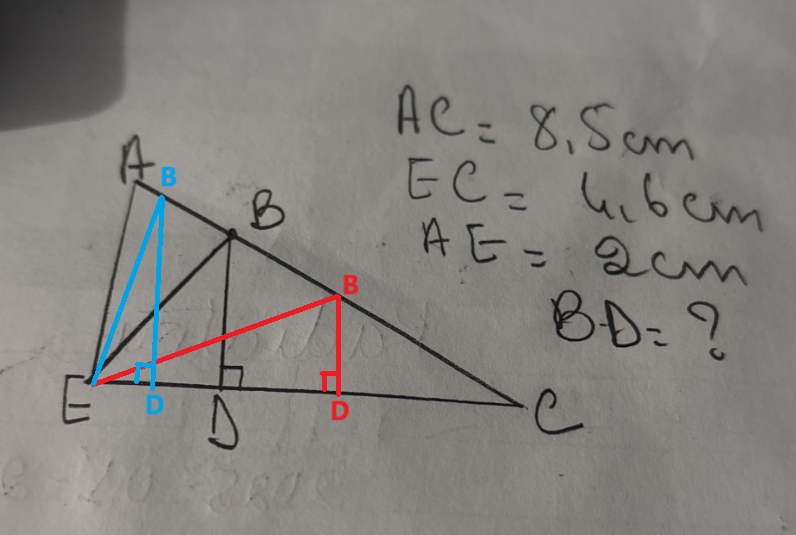 A
B
B
B
E
D
D
D
C
AC = 8,5cm
EC = 4,6cm
AE = 2cm
BD = ?